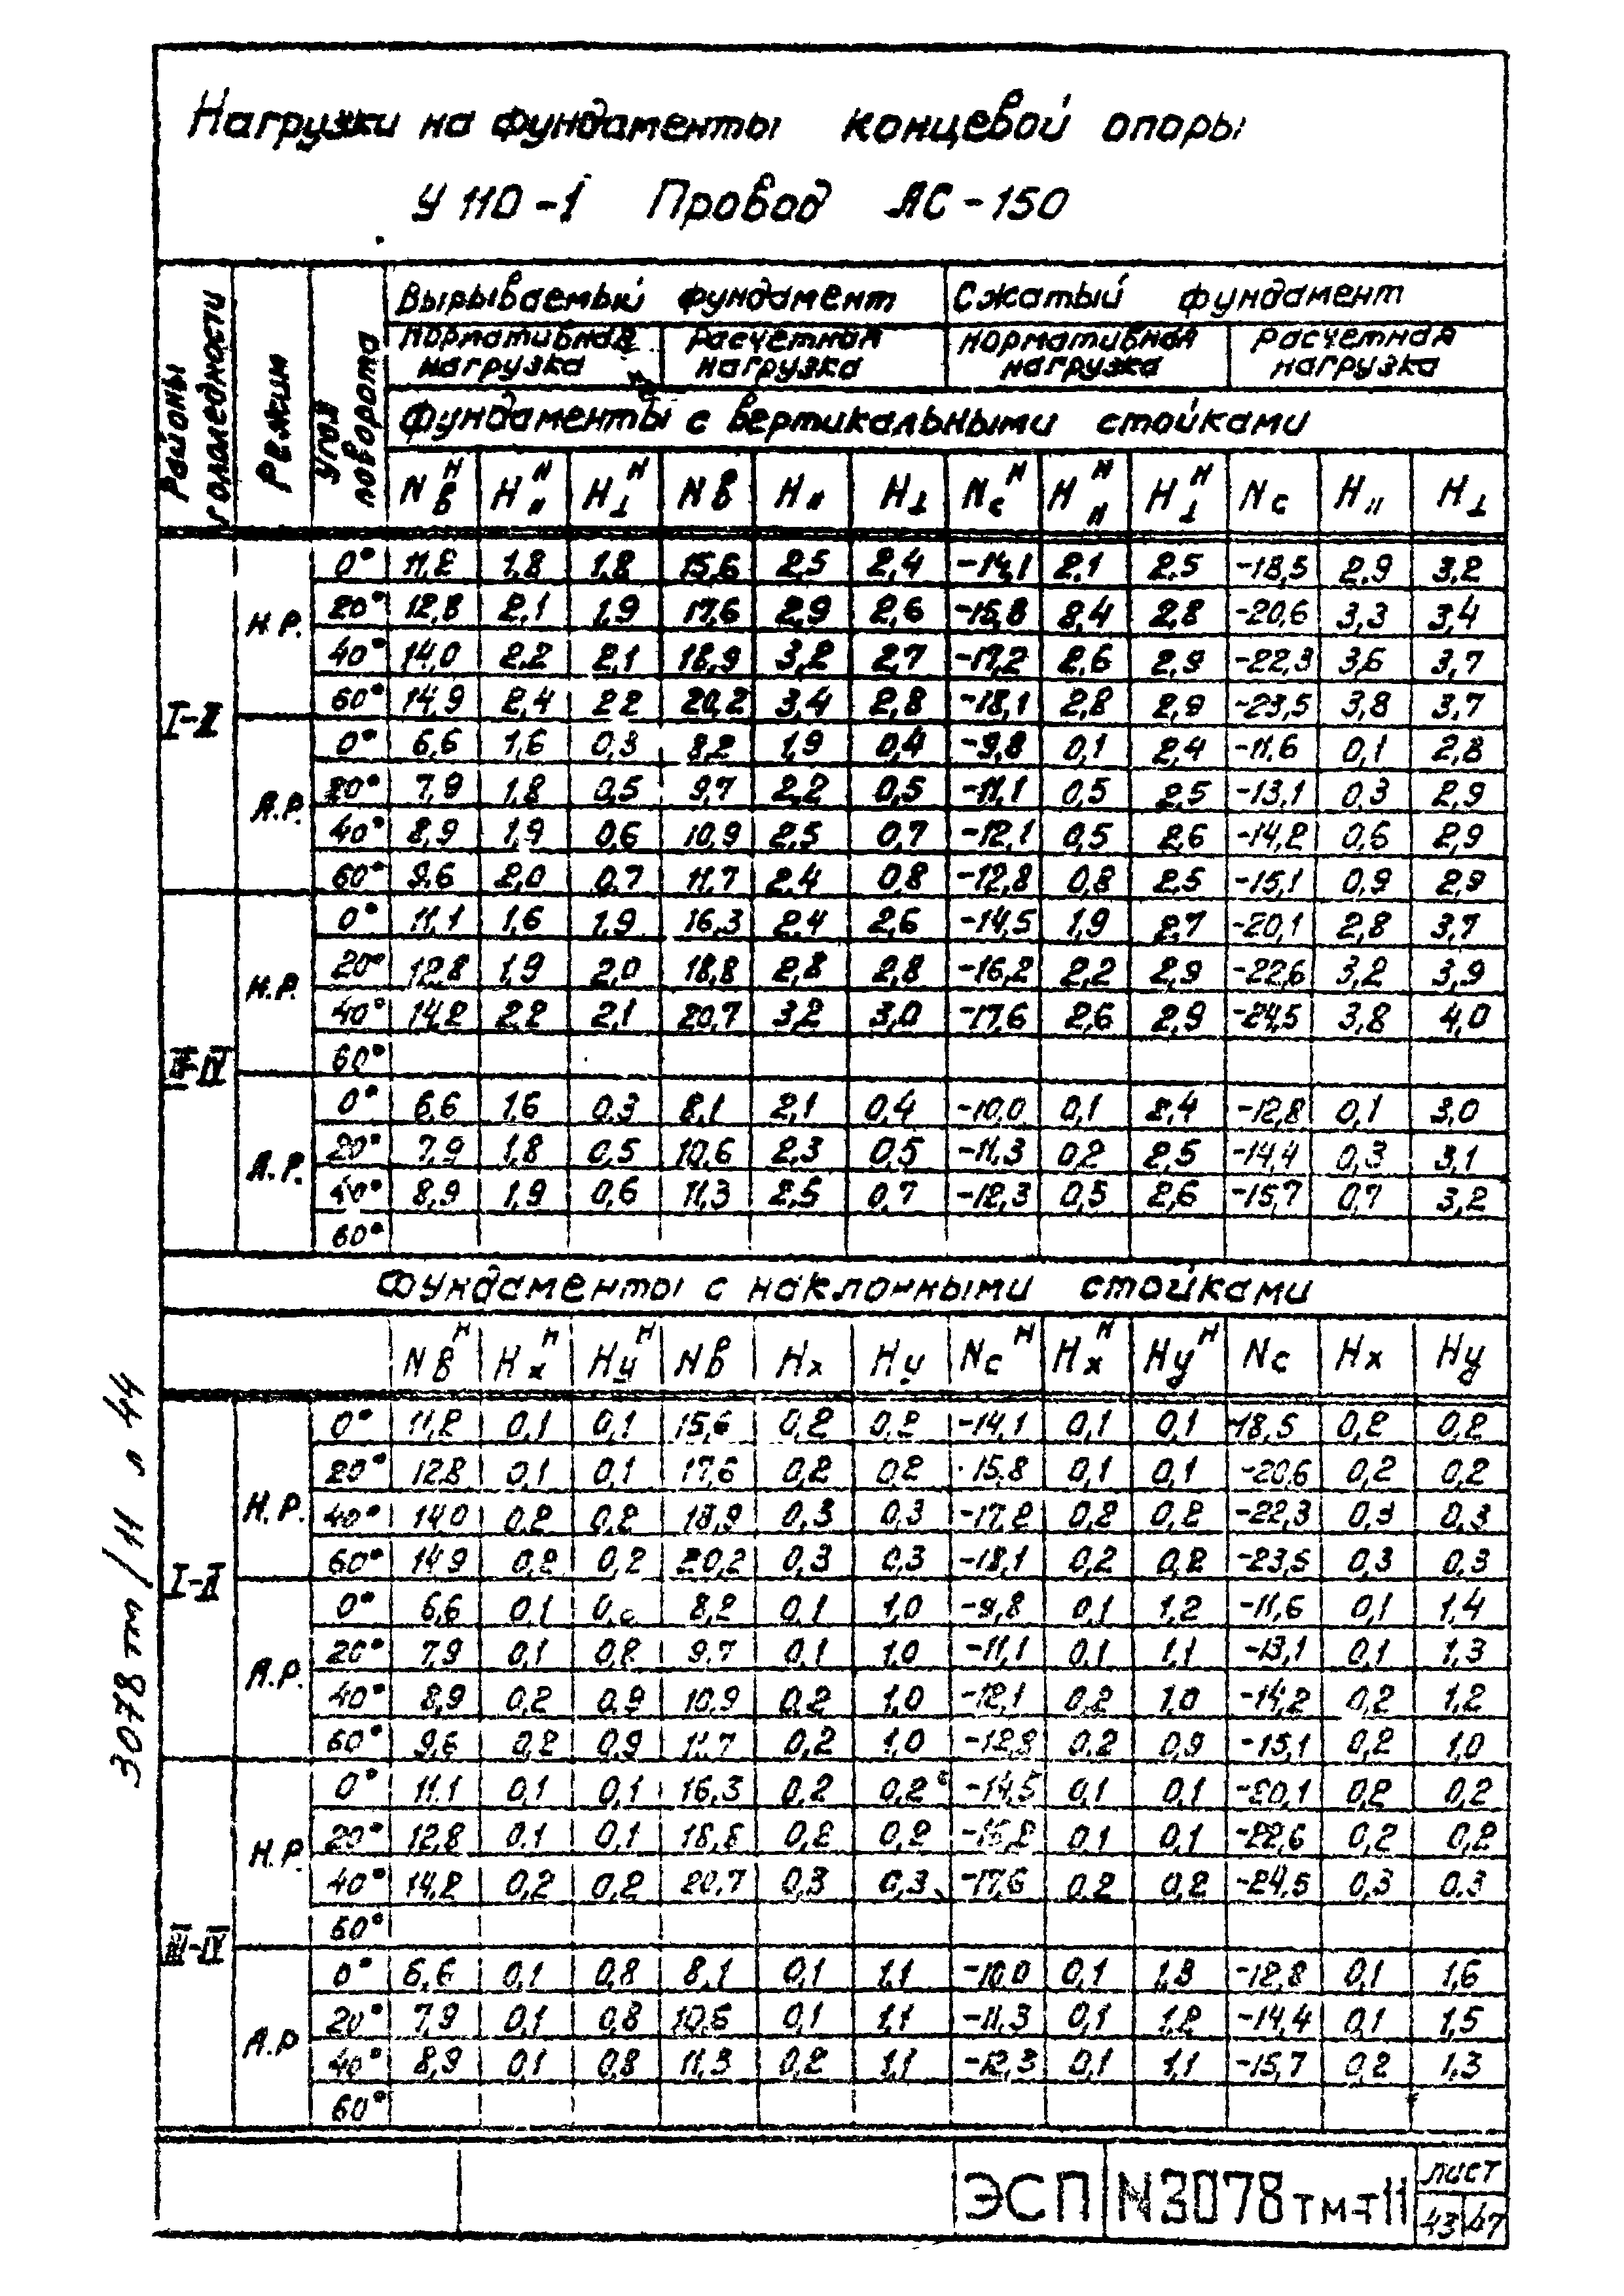 Нагрузки на фундаменты концевой опоры
У 110-1 Провод АС-150
Районы гололедности
Режим
Угол поворота
Вырываемый фундамент Сжатый фундамент
Нормативная нагрузка Расчетная нагрузка Нормативная нагрузка Расчетная нагрузка
Фундаменты с вертикальными стойками
Nв^н H॥^н H⊥^н Nв H॥ H⊥ Nс^н H॥^н H⊥^н Nс H॥ H⊥
I-II
Н.Р.
0° 11,2 1,8 1,8 15,6 2,5 2,4 -14,1 2,1 2,5 -18,5 2,9 3,2
20° 12,8 2,1 1,9 17,6 2,9 2,6 -15,8 2,4 2,8 -20,6 3,3 3,4
40° 14,0 2,2 2,1 18,9 3,2 2,7 -17,2 2,6 2,9 -22,3 3,6 3,7
60° 14,9 2,4 22 20,2 3,4 2,8 -18,1 2,8 2,9 -23,5 3,8 3,7
А.Р.
0° 6,6 1,6 0,3 8,2 1,9 0,4 -9,8 0,1 2,4 -11,6 0,1 2,8
20° 7,9 1,8 0,5 9,7 2,2 0,5 -11,1 0,5 2,5 -13,1 0,3 2,9
40° 8,9 1,9 0,6 10,9 2,5 0,7 -12,1 0,5 2,6 -14,2 0,6 2,9
60° 9,6 2,0 0,7 11,7 2,4 0,8 -12,8 0,8 2,5 -15,1 0,9 2,9
III-IV
Н.Р.
0° 11,1 1,6 1,9 16,3 2,4 2,6 -14,5 1,9 2,7 -20,1 2,8 3,7
20° 12,8 1,9 2,0 18,8 2,8 2,8 -16,2 2,2 2,9 -22,6 3,2 3,9
40° 14,2 2,2 2,1 20,7 3,2 3,0 -17,6 2,6 2,9 -24,5 3,8 4,0
60°
А.Р.
0° 6,6 1,6 0,3 8,1 2,1 0,4 -10,0 0,1 2,4 -12,8 0,1 3,0
20° 7,9 1,8 0,5 10,6 2,3 0,5 -11,3 0,2 2,5 -14,4 0,3 3,1
40° 8,9 1,9 0,6 11,3 2,5 0,7 -12,3 0,5 2,6 -15,7 0,7 3,2
60°
Фундаменты с наклонными стойками
Nв^н Hх^н Hу^н Nв Hх Hу Nс^н Hх^н Hу^н Nс Hх Hу
I-II
Н.Р.
0° 11,2 0,1 0,1 15,6 0,2 0,2 -14,1 0,1 0,1 -18,5 0,2 0,2
20° 12,8 0,1 0,1 17,6 0,2 0,2 -15,8 0,1 0,1 -20,6 0,2 0,2
40° 14,0 0,2 0,2 18,9 0,3 0,3 -17,2 0,2 0,2 -22,3 0,3 0,3
60° 14,9 0,2 0,2 20,2 0,3 0,3 -18,1 0,2 0,2 -23,5 0,3 0,3
А.Р.
0° 6,6 0,1 8,2 0,1 1,0 -9,8 0,1 1,2 -11,6 0,1 1,4
20° 7,9 0,1 0,8 9,7 0,1 1,0 -11,1 0,1 1,1 -13,1 0,1 1,3
40° 8,9 0,2 0,9 10,9 0,2 1,0 -12,1 0,2 1,0 -14,2 0,2 1,2
60° 9,6 0,2 0,9 11,7 0,2 1,0 -12,8 0,2 0,9 -15,1 0,2 1,0
III-IV
Н.Р.
0° 11,1 0,1 0,1 16,3 0,2 0,2 -14,5 0,1 0,1 -20,1 0,2 0,2
20° 12,8 0,1 0,1 18,8 0,2 0,2 -16,2 0,1 0,1 -22,6 0,2 0,2
40° 14,2 0,2 0,2 20,7 0,3 0,3 -17,6 0,2 0,2 -24,5 0,3 0,3
60°
А.Р
0° 6,6 0,1 0,8 8,1 0,1 1,1 -10,0 0,1 1,3 -12,8 0,1 1,6
20° 7,9 0,1 0,8 10,6 0,1 1,1 -11,3 0,1 1,2 -14,4 0,1 1,5
40° 8,9 0,1 0,8 11,3 0,2 1,1 -12,3 0,1 1,1 -15,7 0,2 1,3
60°
3078тм/11 л 44
ЭСП N3078тм-т11 лист
43 47